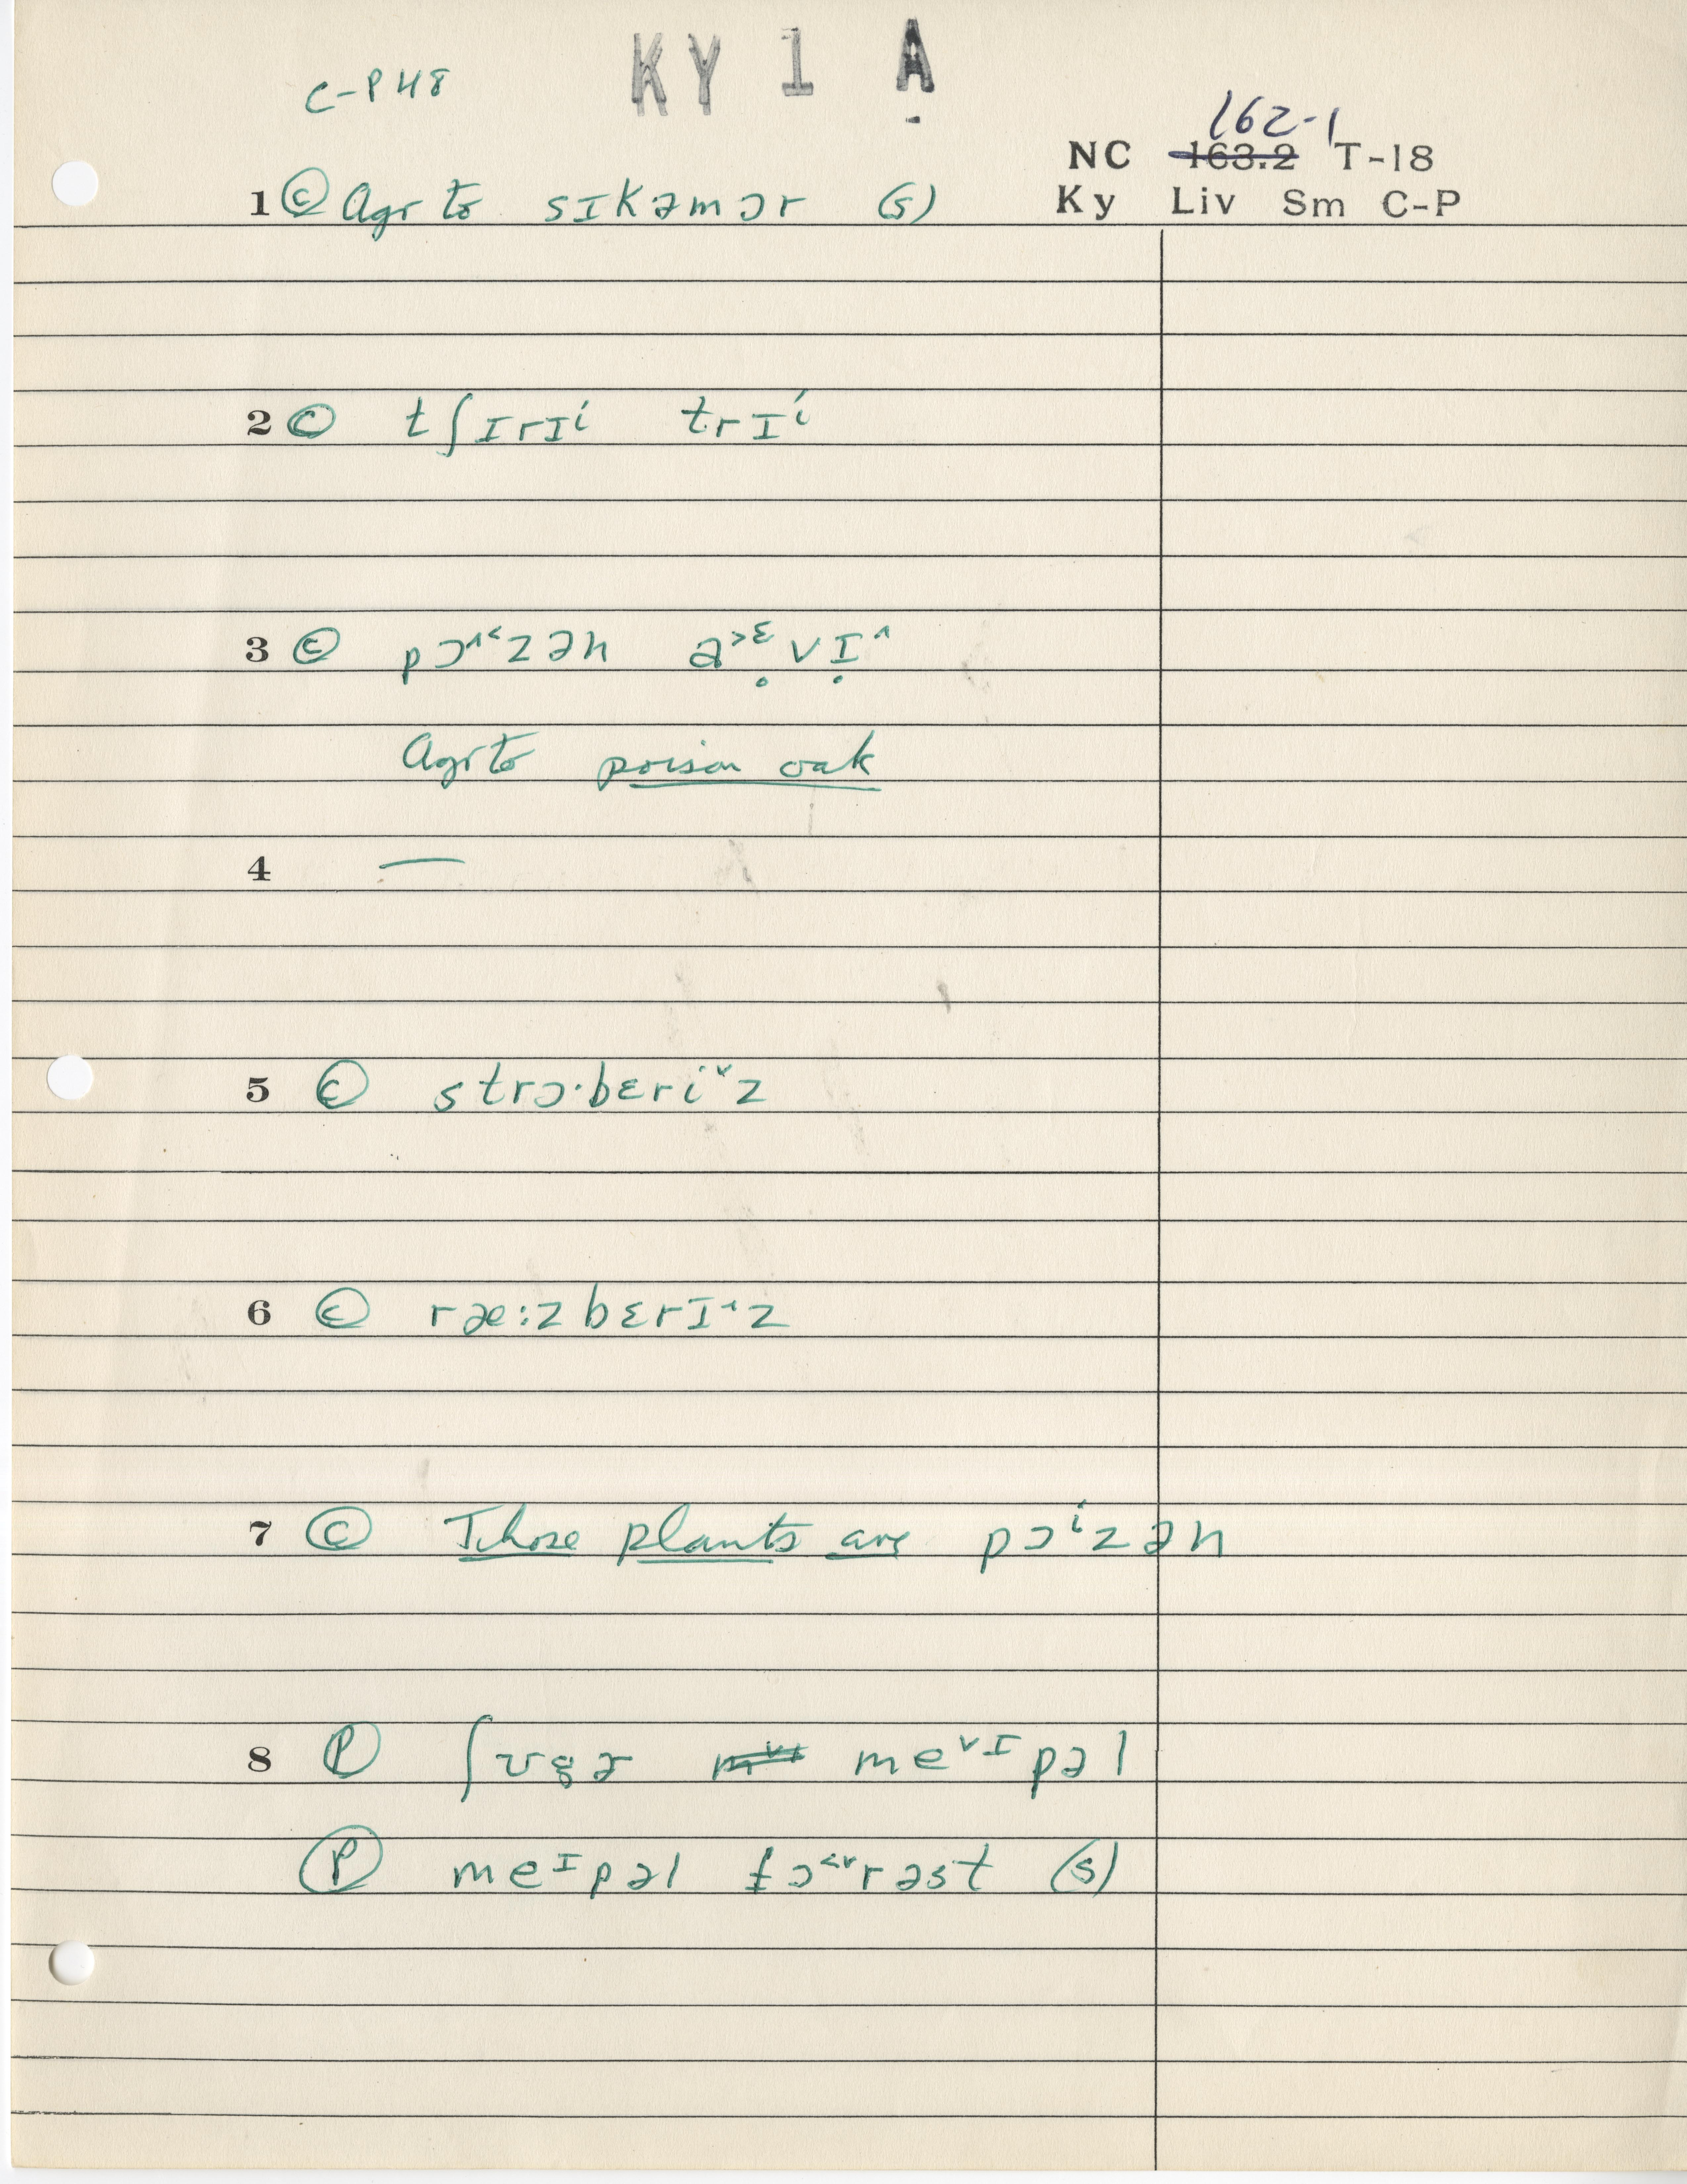 C-P H8 KY 1 A
162-1
NC 163.2 T-18
Ky Liv Sm C-P
1 Ⓒ Agr to sɪkəmɔr (s)
2 Ⓒ tʃɪrɪⁱ trɪⁱ
3 Ⓒ pɔ˄˂zən a˃ᵋ̥vɪ̥˄
Agr to poison oak
4 —
5 Ⓒ strɔ·bɛri˅z
6 Ⓒ ræ:zbɛrɪ˄z
7 Ⓒ Those plants are pɔⁱzən
8 Ⓟ ʃʊgɚ me˅ᶦpəl
Ⓟ meᶦpəl fɔ˂˅rəst (s)